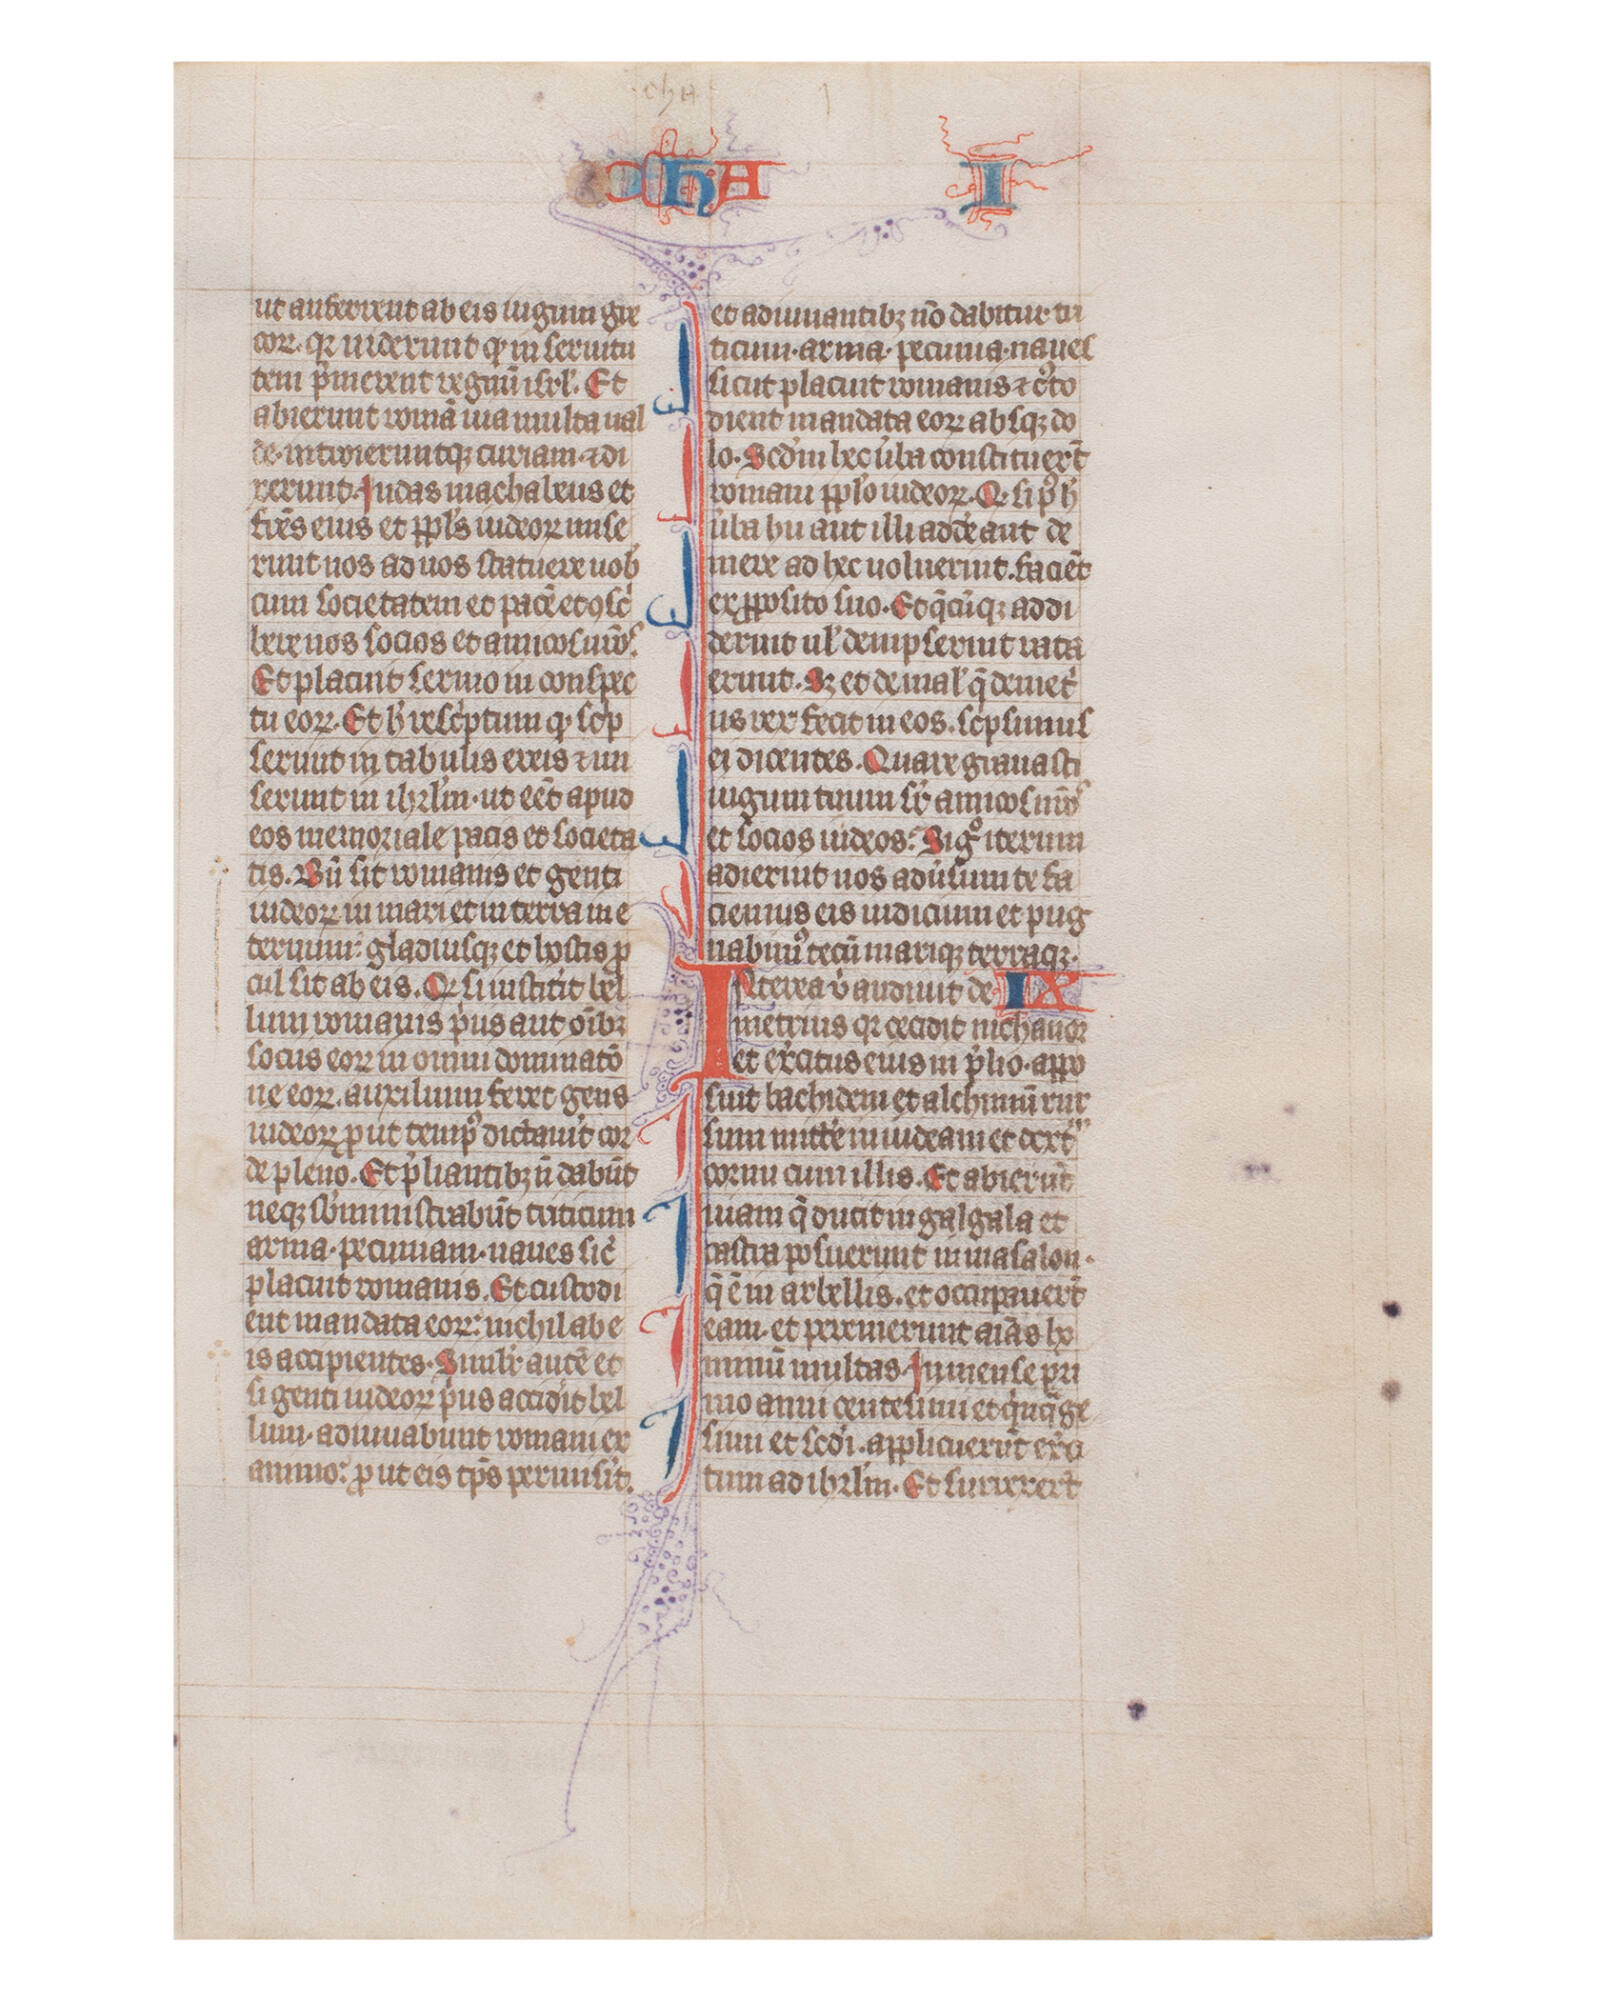 chA
chA I
ut auferrent ab eis iugum gre
coꝝ. qꝛ uiderunt ꝙ in seruitu
tem p̄merent regnū isrl'. Et
abierunt romā uia multa ual
de. introieruntqꝫ curiam. ⁊ di
xerunt. Iudas machabeus et
fr̄es eius et ppl's iudeoꝝ mise
runt nos ad uos statuere uob'
cum societatem et pacē et ꝯsc'
bere nos socios et amicos ur̄os.
Et placuit sermo in conspec
tu eoꝝ. Et h' resc'ptum ꝙ sc'p
serunt in tabulis ereis ⁊ mi
serunt in ihrl'm. ut eēt apud
eos memoriale pacis et societa
tis. Bn̄ sit romanis et genti
iudeoꝝ in mari et in terra in e
ternum: gladiusqꝫ et hostis ꝓ
cul sit ab eis. Qꝛ si institi't bel
lum romanis p'us aut oīb
locus eoꝝ in omni dominatō
ne eoꝝ. auxilium feret gens
iudeoꝝ ꝓut temp' dictaui't cor
de pleno. Et p̄liantibꝫ n̄ dabūt
neqꝫ sb'ministrabūt triticum
arma. pecuniam. naues sic'
placuit romanis. Et custodi
ent mandata eoꝝ: nichil ab e
is accipientes. Simil'r autē et
si genti iudeoꝝ p'us accid'it bel
lum. adiuuabunt romani ex
animo: ꝓut eis tp̄s permis'it.
et adiuuantibꝫ nō dabitur tri
ticum. arma. pecunia. naues
sicut placuit romanis ⁊ c'to
dient mandata eoꝝ absqꝫ do
lo. Scd'm hec u'ba constituer̄t
romani pp̄lo iudeoꝝ. Qꝛ si p' h'
u'ba hii aut illi add'e aut de
mere ad hec uoluerint. faciēt
ex ꝓposito suo. Et q̄cūqꝫ addi
derint ul' dempserint rata
erunt. Sꝫ et de mal' q̄ demet'
us rex fecit in eos. sc'psimus
ei dicentes. Quare grauasti
iugum tuum sr̄ amicos nr̄os
et socios iudeos: Si gͦ iterum
adierint nos adu'sum te fa
ciemus eis iudicium et pug
nabim' tecū mariqꝫ terraqꝫ.
IX
Interea ū audiuit de
metrius qꝛ cecidit nichanor
et exc'itus eius in p̄lio. appo
suit bachidem et alchimū rur
sum mitt'e in iudeam et dext'
cornu cum illis. Et abierūt
uiam q̄ ducit in galgala et
castra posuerunt in masalon.
q̄ ē in arbellis. et occupauer̄t
eam. et peremerunt aīas ho
minū multas. In mense pri
mo anni centesimi et q'nq̄ge
simi et sc'di. applicuerūt exc'i
tum ad ihrl'm. Et surrexer̄t